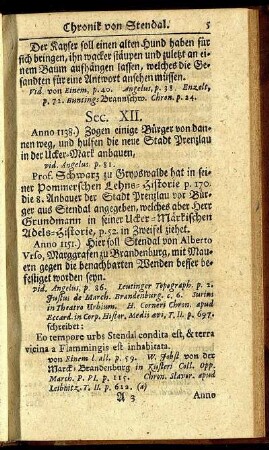 Chronik von Stendal. 5
Der Kayser soll einen alten Hund haben für
sich bringen, ihn wacker stäupen und zuletzt an ei-
nem Baum aufhängen lassen, welches die Ge-
sandten für eine Antwort ansehen müssen.
Vid. von Einem, p. 40. Angelus, p. 38. Enzelt,
p. 72. Buntings Braunschw. Chron. p. 24.
Sec. XII.
Anno 1138.) Zogen einige Bürger von dan-
nen weg, und hulfen die neue Stadt Prenzlau
in der Ucker-Mark anbauen,
vid. Angelus, p. 81.
Prof. Schwarz zu Grypswalde hat in sei-
ner Pommerschen Lehns-Historie p. 170.
die 8. Anbauer der Stadt Prenzlau vor Bür-
ger aus Stendal angegeben, welches aber Herr
Grundmann in seiner Ucker-Märkischen
Adels-Historie, p. 52. in Zweifel ziehet.
Anno 1151.) Hier soll Stendal von Alberto
Urso, Marggrafen zu Brandenburg, mit Mau-
ern gegen die benachbarten Wenden besser be-
festiget worden seyn.
vid. Angelus, p. 86. Leutinger Topograph. p. 2.
Justus de March. Brandenburg. c. 6. Surius
in Theatro Urbium. H. Corneri Chron. apud
Eccard. in Corp. Histor. Medii ævi, T. II. p. 697.
schreibet:
Eo tempore urbs Stendal condita est, & terra
vicina a Flammingis est inhabitata.
von Einem l. all. p. 59. W. Jobst von der
Marck-Brandenburg in Küsteri Coll. opp.
March. P. Pl. p. 115. Chron. Slavor. apud
Leibnitz. T. II. p. 612. (a)
A 3 Anno